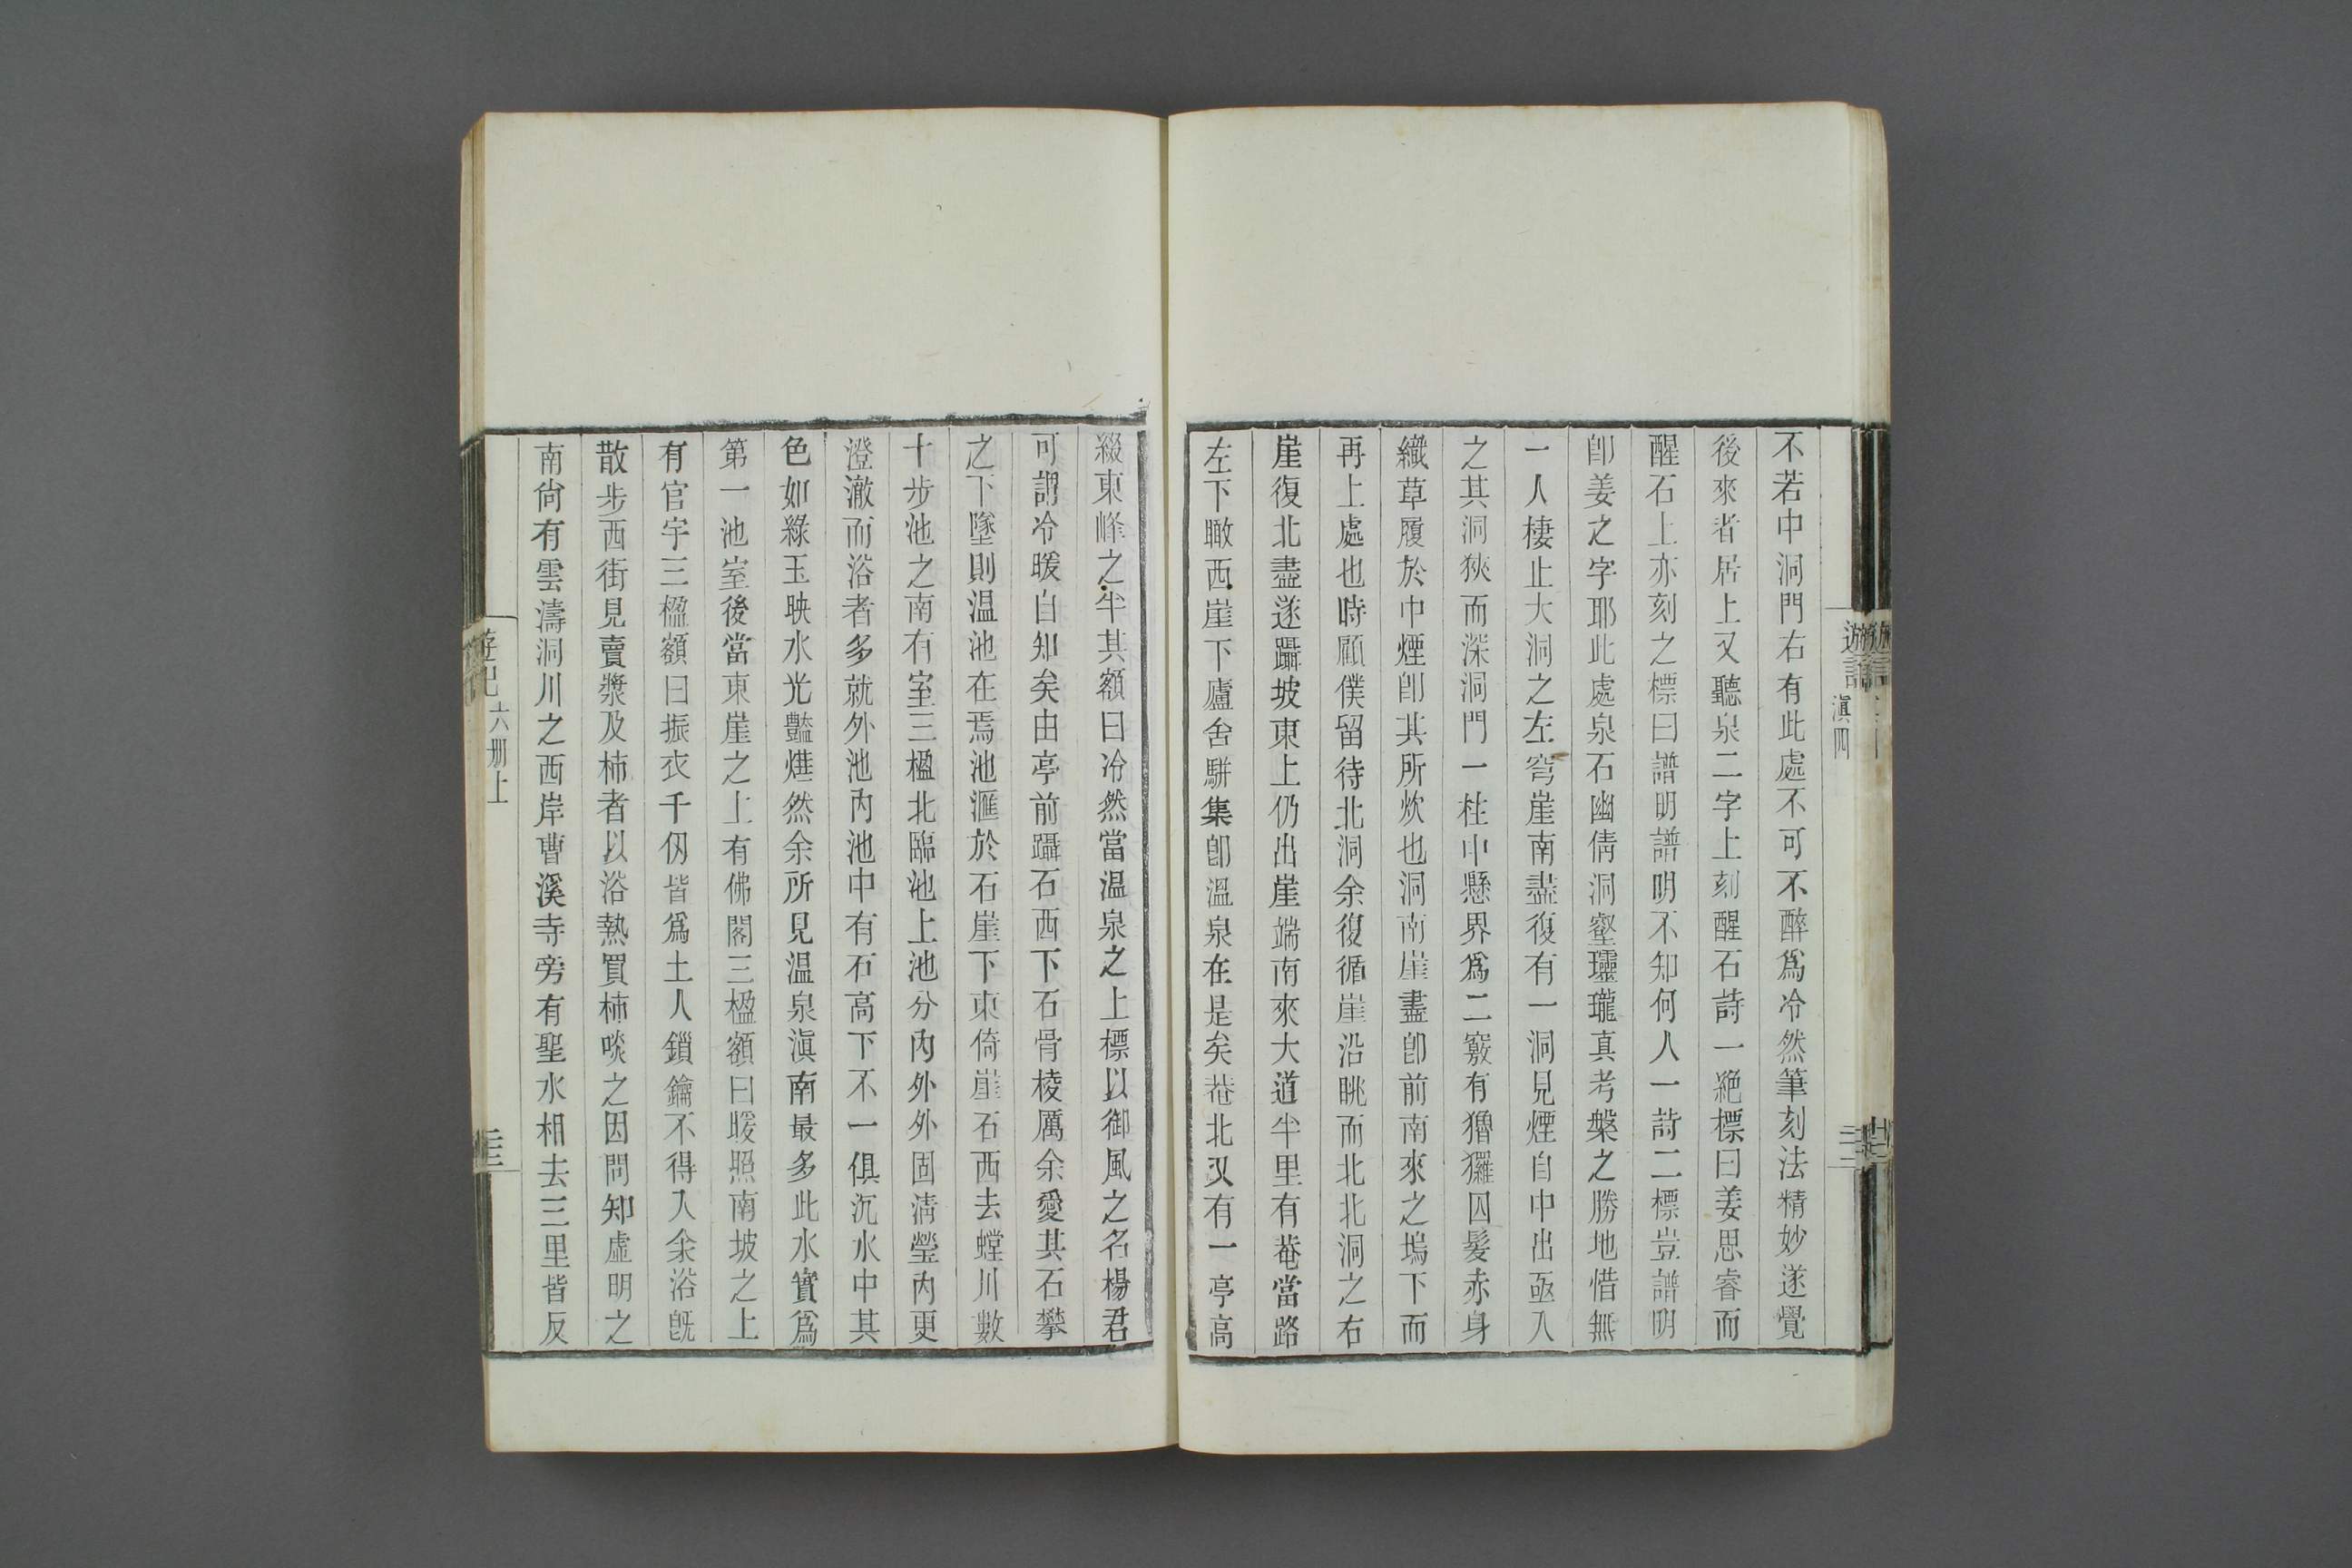 不若中洞門右有此處不可不醉爲冷然筆刻法精妙遂覺
後來者居上又聽泉二字上刻醒石詩一絕標曰姜思睿而
醒石上亦刻之標曰譜明譜明不知何人一詩二標豈譜明
卽姜之字耶此處泉石幽倩洞壑瓏瓏真考槃之勝地惜無
一人棲止大洞之左穹崖南盡復有一洞見煙自中出亟入
之其洞狹而深洞門一柱中懸界爲二竅有獛玀囚髮赤身
織草履於中煙卽其所炊也洞南崖盡卽前南來之塢下而
再上處也時顧僕留待北洞余復循崖沿眺而北北洞之右
崖復北盡遂躡坡東上仍出崖端南來大道半里有菴當路
左下瞰西崖下廬舍駢集卽溫泉在是矣菴北又有一亭高
綴東峰之半其額曰冷然當温泉之上標以御風之名楊君
可謂冷暖自知矣由亭前躡石西下石骨棱厲余愛其石攀
之下墜則温池在焉池滙於石崖下東倚崖石西去螳川數
十步池之南有室三楹北臨池上池分內外外固清瑩內更
澄澈而浴者多就外池內池中有石高下不一俱沉水中其
色如綠玉映水光豔燁然余所見温泉滇南最多此水實爲
第一池室後當東崖之上有佛閣三楹額曰暖照南坡之上
有官宇三楹額曰振衣千仞皆爲土人鎖鑰不得入余浴旣
散步西街見賣漿及柿者以浴熱買柿啖之因問知虛明之
南尙有雲濤洞川之西岸曹溪寺旁有聖水相去三里皆反
遊記
滇四
遊記六册上